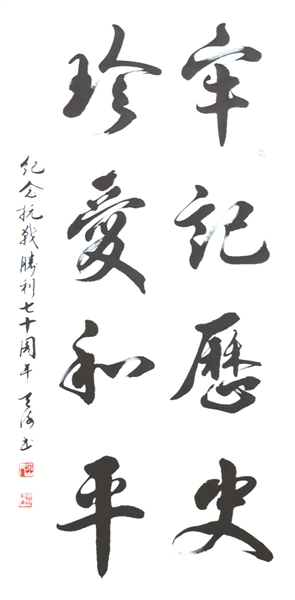 牢記歷史
珍愛和平
紀念抗戰勝利七十周年